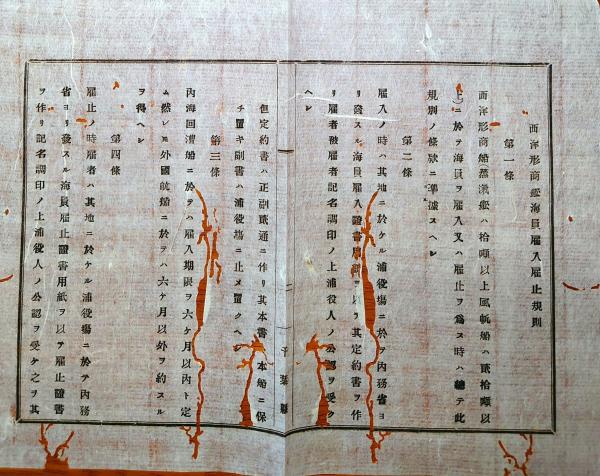 西洋形商舩海員雇入雇止規則
第一條
西洋形商舩蒸滊舩ハ拾噸以上風帆舩ハ貳拾噸以
上ニ於テ海員ヲ雇入又ハ雇止ヲ爲ス時ハ總テ此
規則ノ條欵ニ準據スヘシ
第二條
雇入ノ時ハ其地ニ於ケル浦役塲ニ於テ內務省ヨ
リ發スル海員雇入證書用ヲ以テ其定約書ヲ作
リ雇者被雇者記名調印ノ上浦役人ノ公認ヲ受ク
ヘシ
千葉縣
但定約書ハ正副貳通ニ作リ其本書本舩ニ保
チ置キ副書ハ浦役塲ニ止メ置クヘシ
第三條
內海回漕舩ニ於テハ雇入期限ヲ六ケ月以內ト定
ム然レ𪜈外國航舩ニ於テハ六ケ月以外ヲ約スル
ヲ得ヘシ
第四條
雇止ノ時雇者ハ其地ニ於ケル浦役塲ニ於テ內務
省ヨリ發スル海員雇止證書用紙ヲ以テ雇止證書
ヲ作リ記名調印ノ上浦役人ノ公認ヲ受ケ之ヲ其